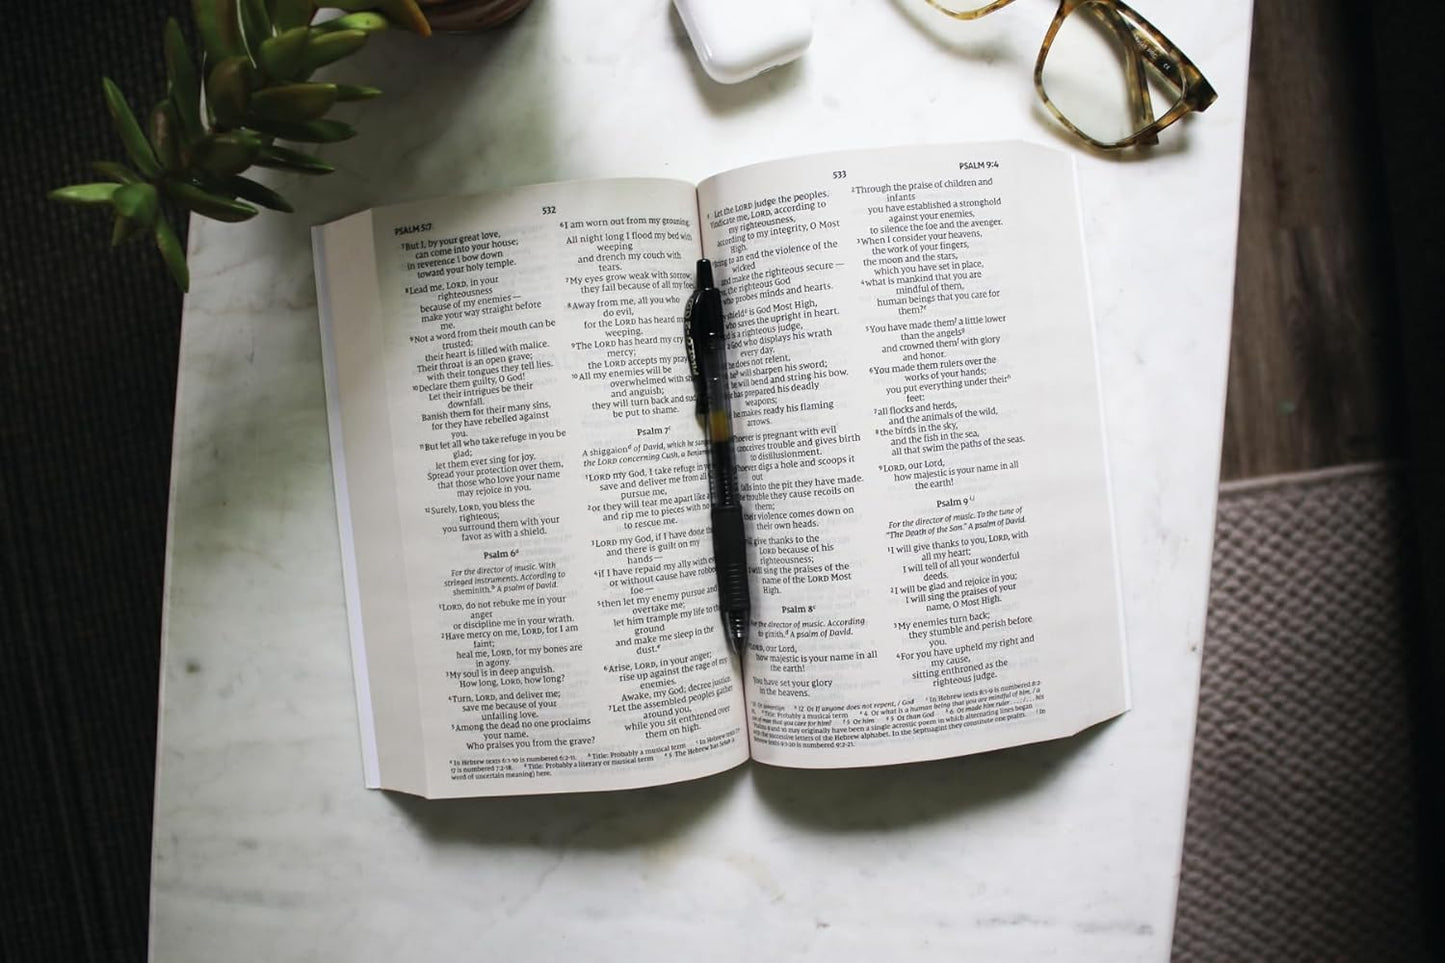 532
PSALM 5:7
⁷But I, by your great love,
can come into your house;
in reverence I bow down
toward your holy temple.
⁸Lead me, LORD, in your
righteousness
because of my enemies —
make your way straight before
me.
⁹Not a word from their mouth can be
trusted;
their heart is filled with malice.
Their throat is an open grave;
with their tongues they tell lies.
¹⁰Declare them guilty, O God!
Let their intrigues be their
downfall.
Banish them for their many sins,
for they have rebelled against
you.
¹¹But let all who take refuge in you be
glad;
let them ever sing for joy.
Spread your protection over them,
that those who love your name
may rejoice in you.
¹²Surely, LORD, you bless the
righteous;
you surround them with your
favor as with a shield.
Psalm 6ᵃ
For the director of music. With
stringed instruments. According to
sheminith.ᵇ A psalm of David.
¹LORD, do not rebuke me in your
anger
or discipline me in your wrath.
²Have mercy on me, LORD, for I am
faint;
heal me, LORD, for my bones are
in agony.
³My soul is in deep anguish.
How long, LORD, how long?
⁴Turn, LORD, and deliver me;
save me because of your
unfailing love.
⁵Among the dead no one proclaims
your name.
Who praises you from the grave?
⁶I am worn out from my groaning.
All night long I flood my bed with
weeping
and drench my couch with
tears.
⁷My eyes grow weak with sorrow;
they fail because of all my foes.
⁸Away from me, all you who
do evil,
for the LORD has heard my
weeping.
⁹The LORD has heard my cry
mercy;
the LORD accepts my prayer.
¹⁰All my enemies will be
overwhelmed with
and anguish;
they will turn back and
be put to shame.
Psalm 7ᶜ
A shiggaionᵈ of David, which he sang
the LORD concerning Cush, a
¹LORD my God, I take refuge in
save and deliver me from all
pursue me,
²or they will tear me apart like a
and rip me to pieces with no
to rescue me.
³LORD my God, if I have done
and there is guilt on my
hands —
⁴if I have repaid my ally with
or without cause have robbed
foe —
⁵then let my enemy pursue and
overtake me;
let him trample my life to the
ground
and make me sleep in the
dust.ᵉ
⁶Arise, LORD, in your anger;
rise up against the rage of my
enemies.
Awake, my God; decree justice.
⁷Let the assembled peoples gather
around you,
while you sit enthroned over
them on high.
ᵃ In Hebrew texts 6:1-10 is numbered 6:2-11. ᵇ Title: Probably a musical term ᶜ In Hebrew texts
17 is numbered 7:2-18. ᵈ Title: Probably a literary or musical term ᵉ 5 The Hebrew has Selah
word of uncertain meaning) here.
533
PSALM 9:4
Let the LORD judge the peoples.
Vindicate me, LORD, according to
my righteousness,
according to my integrity, O Most
High.
to an end the violence of the
wicked
and make the righteous secure —
the righteous God
who probes minds and hearts.
is God Most High,
who saves the upright in heart.
is a righteous judge,
a God who displays his wrath
every day.
does not relent,
will sharpen his sword;
he will bend and string his bow.
has prepared his deadly
weapons;
he makes ready his flaming
arrows.
is pregnant with evil
conceives trouble and gives birth
to disillusionment.
digs a hole and scoops it
out
falls into the pit they have made.
trouble they cause recoils on
them;
their violence comes down on
their own heads.
give thanks to the
LORD because of his
righteousness;
I will sing the praises of the
name of the LORD Most
High.
Psalm 8ᶜ
the director of music. According
to gittith.ᵈ A psalm of David.
LORD, our Lord,
how majestic is your name in all
the earth!
You have set your glory
in the heavens.
²Through the praise of children and
infants
you have established a stronghold
against your enemies,
to silence the foe and the avenger.
³When I consider your heavens,
the work of your fingers,
the moon and the stars,
which you have set in place,
⁴what is mankind that you are
mindful of them,
human beings that you care for
them?ᵉ
⁵You have made themᶠ a little lower
than the angelsᵍ
and crowned themᶠ with glory
and honor.
⁶You made them rulers over the
works of your hands;
you put everything under theirʰ
feet:
⁷all flocks and herds,
and the animals of the wild,
⁸the birds in the sky,
and the fish in the sea,
all that swim the paths of the seas.
⁹LORD, our Lord,
how majestic is your name in all
the earth!
Psalm 9ⁱ,ʲ
For the director of music. To the tune of
"The Death of the Son." A psalm of David.
¹I will give thanks to you, LORD, with
all my heart;
I will tell of all your wonderful
deeds.
²I will be glad and rejoice in you;
I will sing the praises of your
name, O Most High.
³My enemies turn back;
they stumble and perish before
you.
⁴For you have upheld my right and
my cause,
sitting enthroned as the
righteous judge.
12 Or If anyone does not repent, / God In Hebrew texts 8:1-9 is numbered 8:2-
Title: Probably a musical term 4 Or what is a human being that you are mindful of him, / a
son of man that you care for him? 5 Or him 5 Or than God 6 Or made him ruler . . . ; / . . . his
Psalms 9 and 10 may originally have been a single acrostic poem in which alternating lines began
with the successive letters of the Hebrew alphabet. In the Septuagint they constitute one psalm. In
Hebrew texts 9:1-20 is numbered 9:2-21.